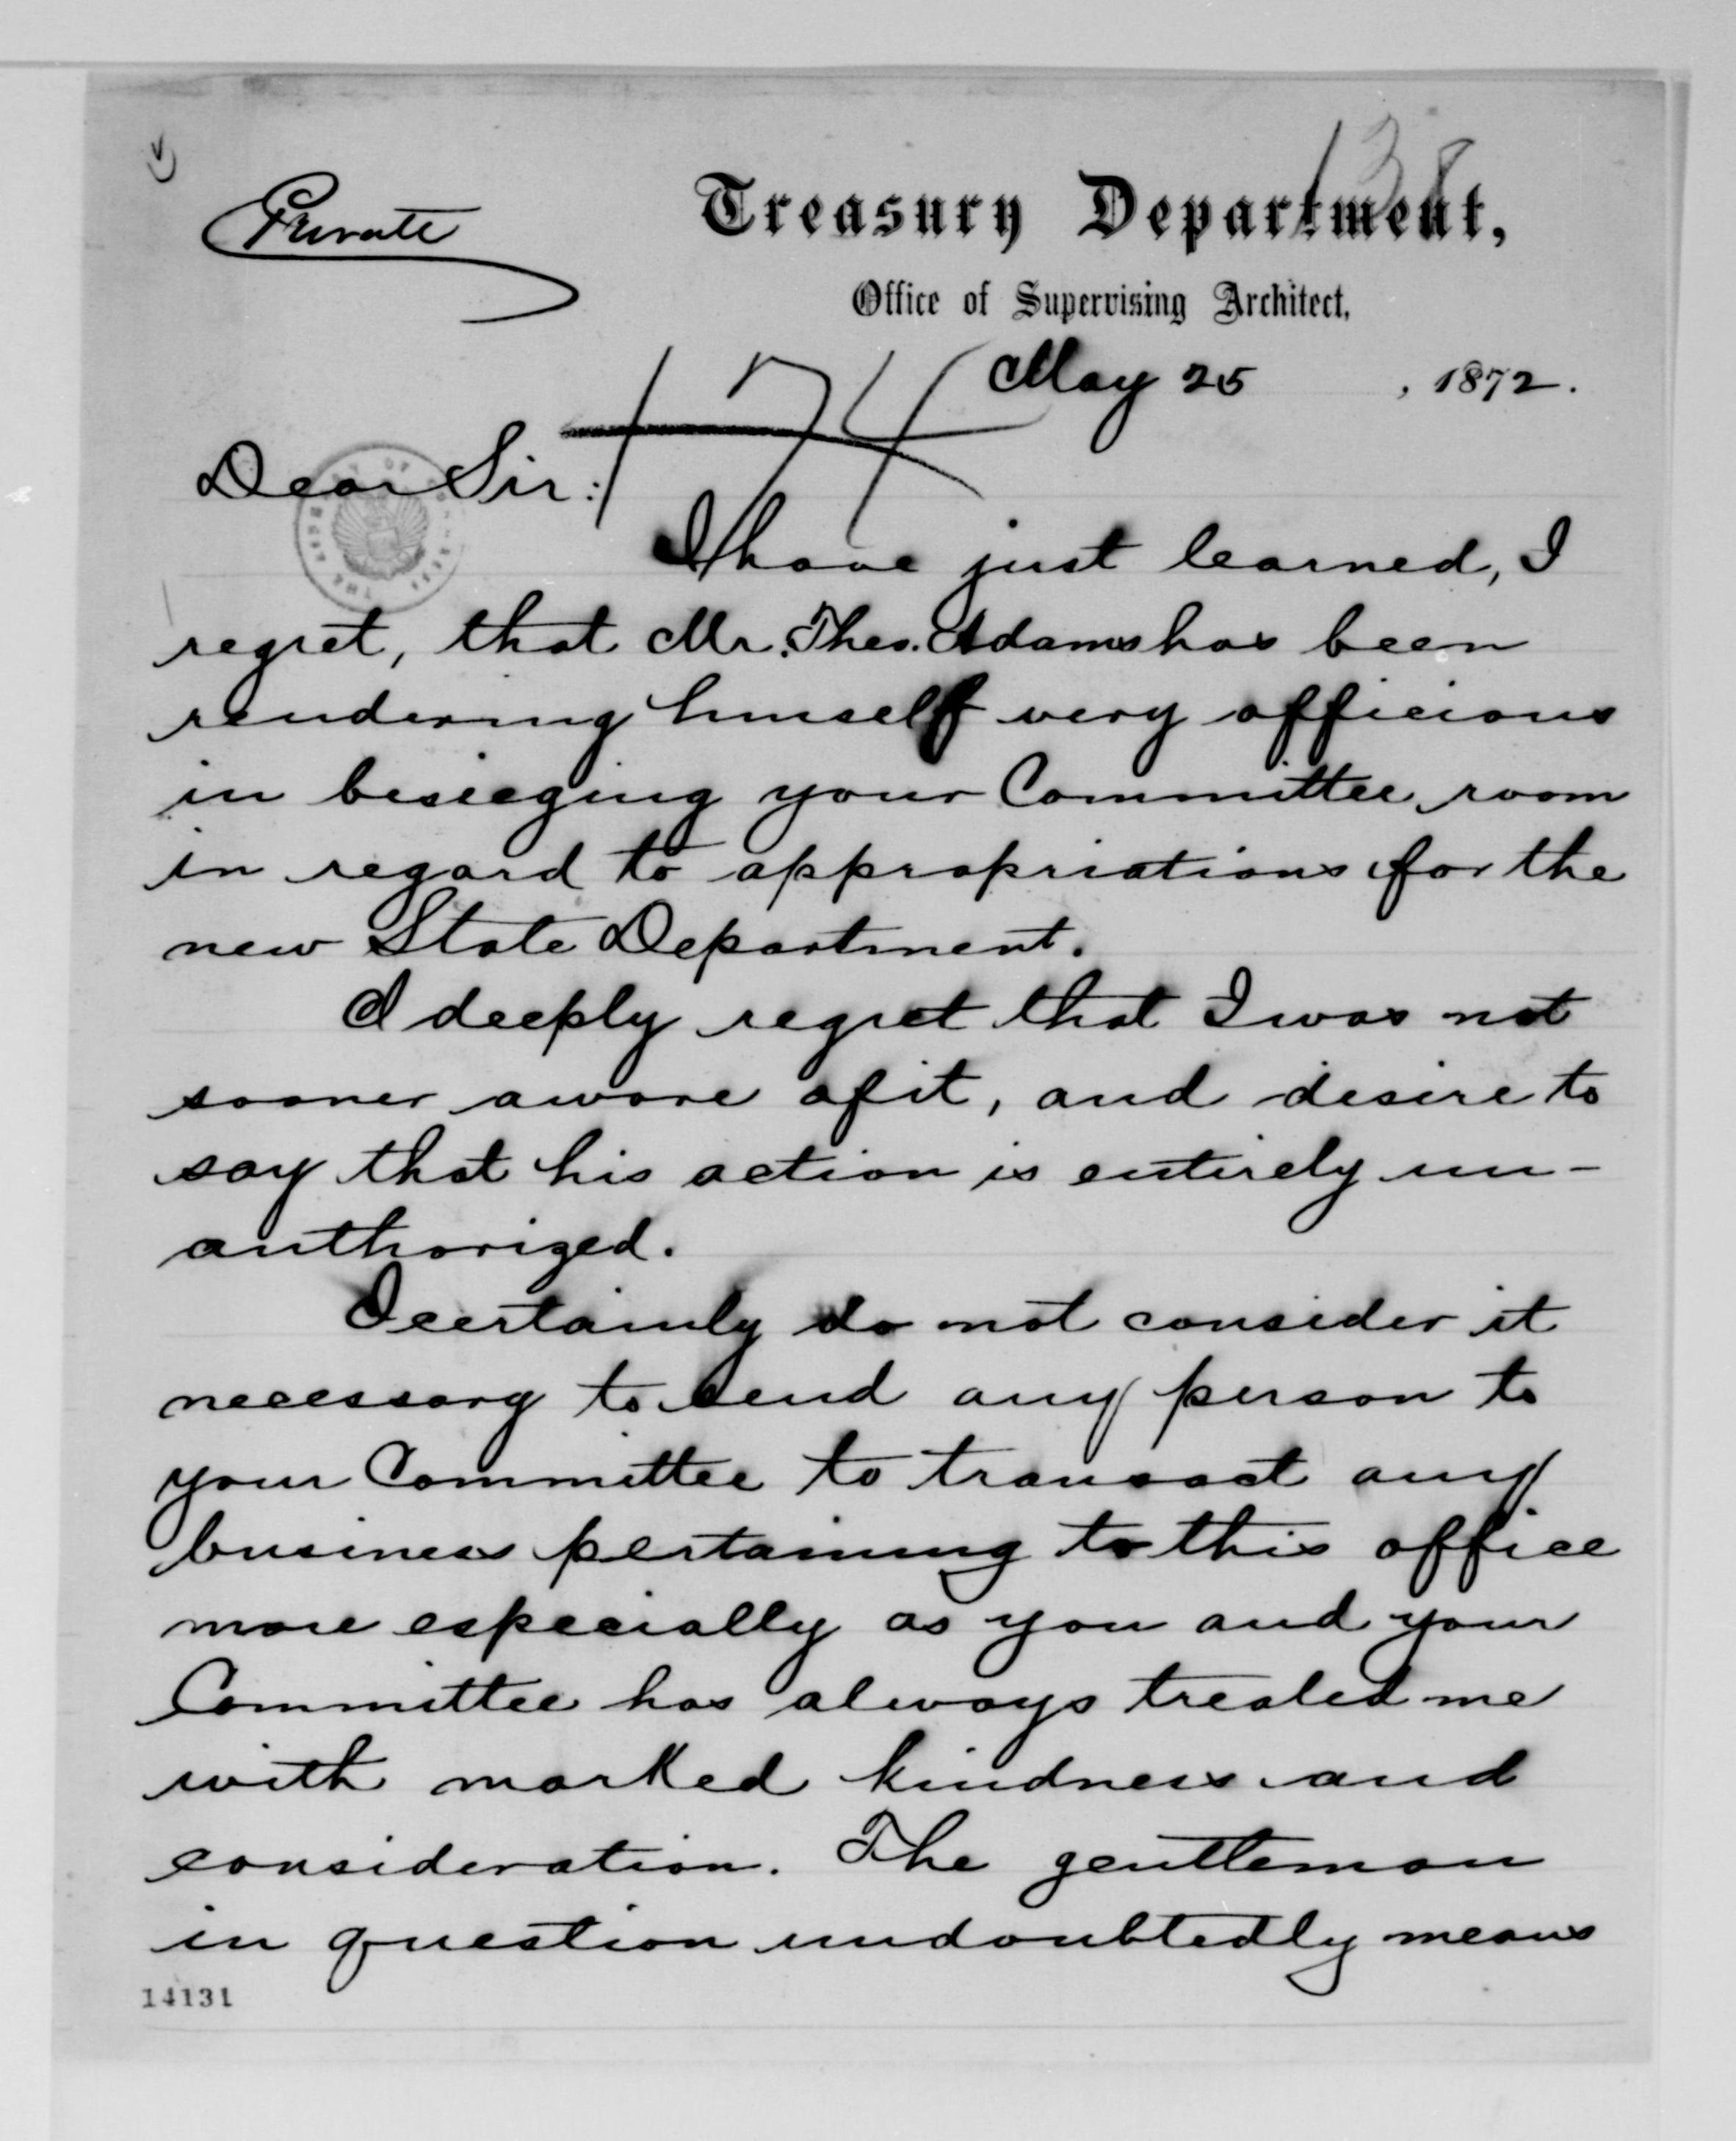 138
Private
Treasury Department,
Office of Supervising Architect,
May 25, 1872.
174
Dear Sir:
I have just learned, I
regret, that Mr. Theo. Adams has been
rendering himself very officious
in besieging your Committee room
in regard to appropriations for the
new State Department.
I deeply regret that I was not
sooner aware of it, and desire to
say that his action is entirely un-
authorized.
I certainly do not consider it
necessary to send any person to
your Committee to transact any
business pertaining to this office
more especially as you and your
Committee has always treated me
with marked kindness and
consideration. The gentleman
in question undoubtedly means
14131